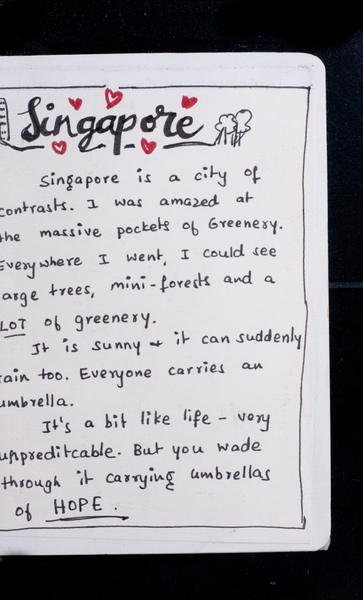 Singapore
Singapore is a city of
contrasts. I was amazed at
the massive pockets of Greenery.
Everywhere I went, I could see
large trees, mini-forests and a
LOT of greenery.
It is sunny + it can suddenly
rain too. Everyone carries an
umbrella.
It's a bit like life - very
unpreditcable. But you wade
through it carrying umbrellas
of HOPE.